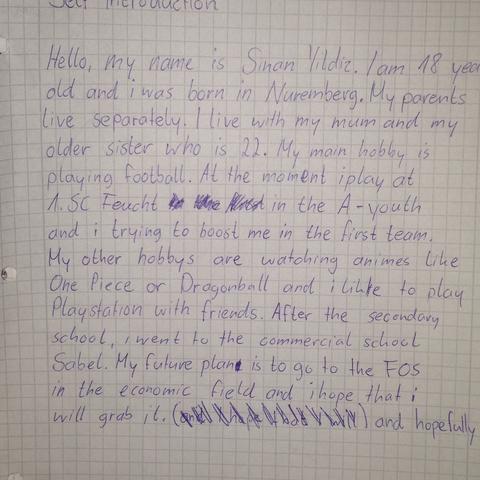 Self Introduction
Hello, my name is Sinan Yildiz. I am 18 yea
old and i was born in Nuremberg. My parents
live separately. I live with my mum and my
older sister who is 22. My main hobby is
playing football. At the moment iplay at
1. SC Feucht in the A-youth
and i trying to boost me in the first team.
My other hobbys are watching animes like
One Piece or Dragonball and i like to play
Playstation with friends. After the secondary
school, i went to the commercial school
Sabel. My future plan is to go to the FOS
in the economic field and ihope that i
will grab it. ( ) and hopefully